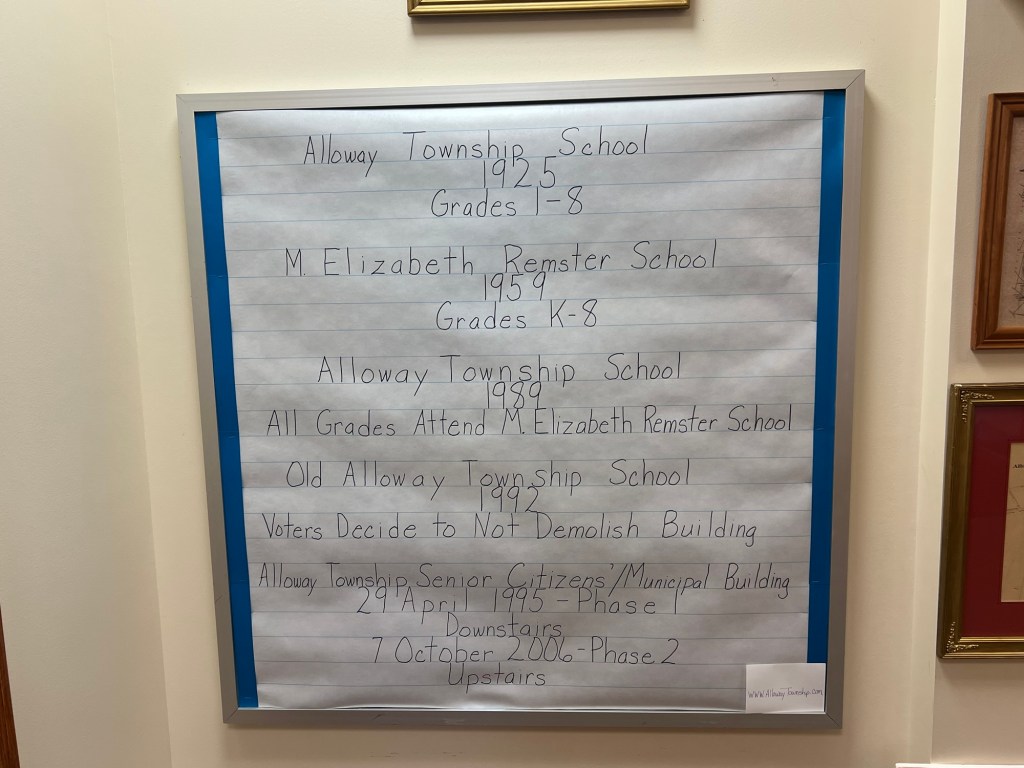 Alloway Township School
1925
Grades 1-8
M. Elizabeth Remster School
1959
Grades K-8
Alloway Township School
1989
All Grades Attend M. Elizabeth Remster School
Old Alloway Township School
1992
Voters Decide to Not Demolish Building
Alloway Township Senior Citizens'/Municipal Building
29 April 1995 - Phase 1
Downstairs
7 October 2006 - Phase 2
Upstairs
www.AllowayTownship.com